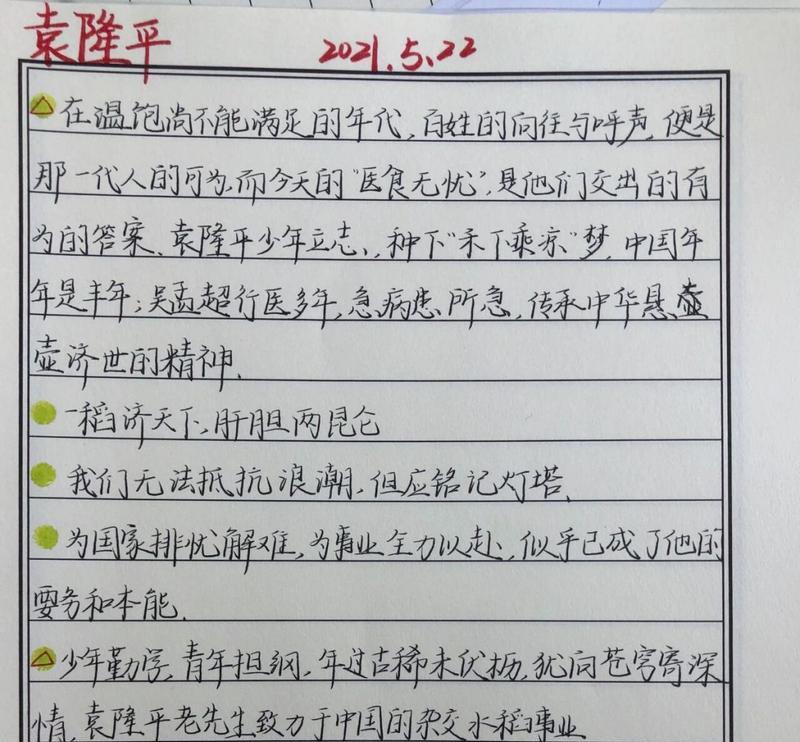 袁隆平 2021.5.22
在温饱尚不能满足的年代,百姓的向往与呼声,便是
那一代人的可为,而今天的"医食无忧",是他们交出的有
为的答案、袁隆平少年立志,种下"禾下乘凉"梦,中国年
年是丰年;吴孟超行医多年,急病患所急,传承中华悬壶
壶济世的精神.
一稻济天下,肝胆两昆仑
我们无法抵抗浪潮,但应铭记灯塔.
为国家排忧解难,为事业全力以赴,似乎已成了他的
要务和本能.
少年勤学,青年担纲,年过古稀未伏枥,犹向苍穹寄深
情,袁隆平老先生致力于中国的杂交水稻事业